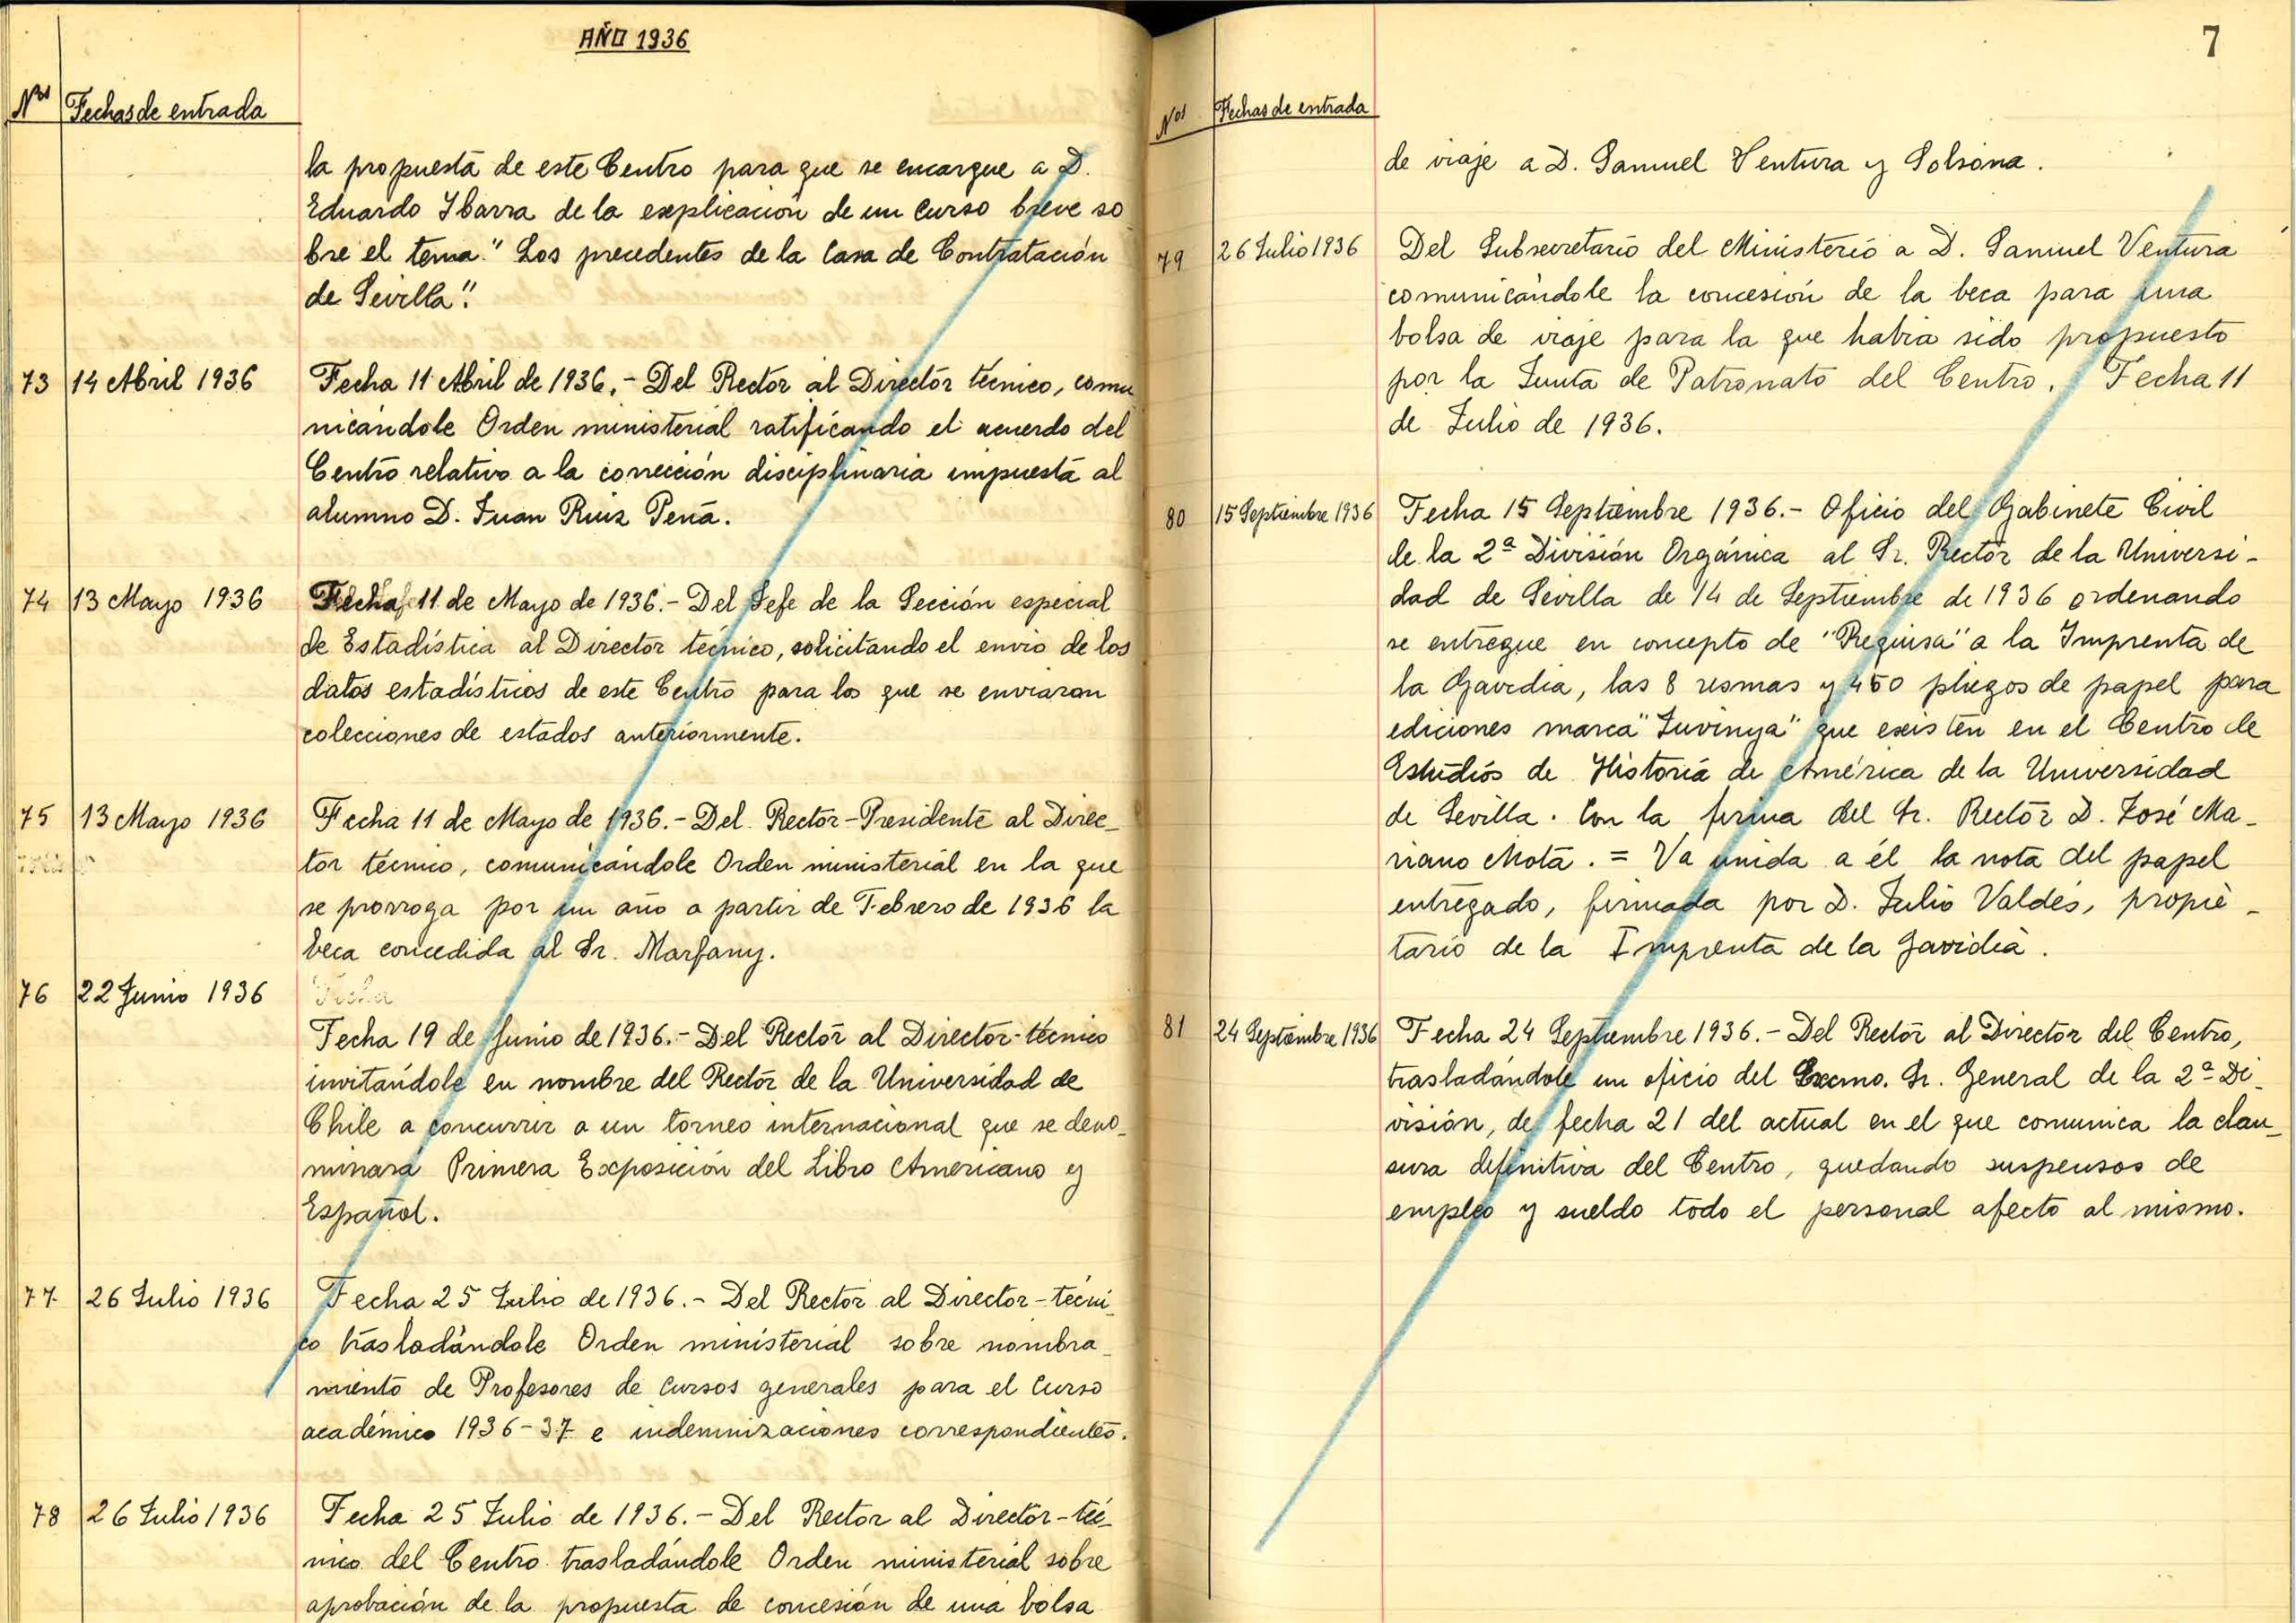 AÑO 1936
Nos Fechas de entrada
la propuesta de este Centro para que se encargue a D.
Eduardo Ibarra de la explicación de un Curso breve so
bre el tema "Los precedentes de la Casa de Contratación
de Sevilla".
73 14 Abril 1936 Fecha 11 Abril de 1936.- Del Rector al Director técnico, comu
nicándole Orden ministerial ratificando el acuerdo del
Centro relativo a la corrección disciplinaria impuesta al
alumno D. Juan Ruiz Peña.
74 13 Mayo 1936 Fecha 11 de Mayo de 1936.- Del Jefe de la Sección especial
de Estadística al Director técnico, solicitando el envio de los
datos estadísticos de este Centro para los que se enviaron
colecciones de estados anteriormente.
75 13 Mayo 1936 Fecha 11 de Mayo de 1936.- Del Rector-Presidente al Direc-
tor técnico, comunicándole Orden ministerial en la que
se prorroga por un año a partir de Febrero de 1936 la
beca concedida al Sr. Marfany.
76 22 Junio 1936 Fecha
Fecha 19 de Junio de 1936.- Del Rector al Director-técnico
invitándole en nombre del Rector de la Universidad de
Chile a concurrir a un torneo internacional que se deno-
minará Primera Exposición del Libro Americano y
Español.
77 26 Julio 1936 Fecha 25 Julio de 1936.- Del Rector al Director-técni-
co trasladándole Orden ministerial sobre nombra-
miento de Profesores de Cursos generales para el Curso
académico 1936-37 e indemnizaciones correspondientes.
78 26 Julio 1936 Fecha 25 Julio de 1936.- Del Rector al Director-téc-
nico del Centro trasladándole Orden ministerial sobre
aprobación de la propuesta de concesión de una bolsa
7
Nos Fechas de entrada
de viaje a D. Samuel Ventura y Solsona.
79 26 Julio 1936 Del Subsecretario del Ministerio a D. Samuel Ventura
comunicándole la concesión de la beca para una
bolsa de viaje para la que habia sido propuesto
por la Junta de Patronato del Centro. Fecha 11
de Julio de 1936.
80 15 Septiembre 1936 Fecha 15 Septiembre 1936.- Oficio del Gabinete Civil
de la 2ª División Orgánica al Sr. Rector de la Universi-
dad de Sevilla de 14 de Septiembre de 1936 ordenando
se entregue en concepto de "Requisa" a la Imprenta de
la Gavidia, las 8 resmas y 450 pliegos de papel para
ediciones marca "Juvinya" que existen en el Centro de
Estudios de Historia de América de la Universidad
de Sevilla. Con la firma del Sr. Rector D. José Ma-
riano Mota. = Va unida a él la nota del papel
entregado, firmada por D. Julio Valdés, propie-
tario de la Imprenta de la Gavidia.
81 24 Septiembre 1936 Fecha 24 Septiembre 1936.- Del Rector al Director del Centro,
trasladándole un oficio del Excmo. Sr. General de la 2ª Di-
visión, de fecha 21 del actual en el que comunica la clau-
sura definitiva del Centro, quedando suspensos de
empleo y sueldo todo el personal afecto al mismo.